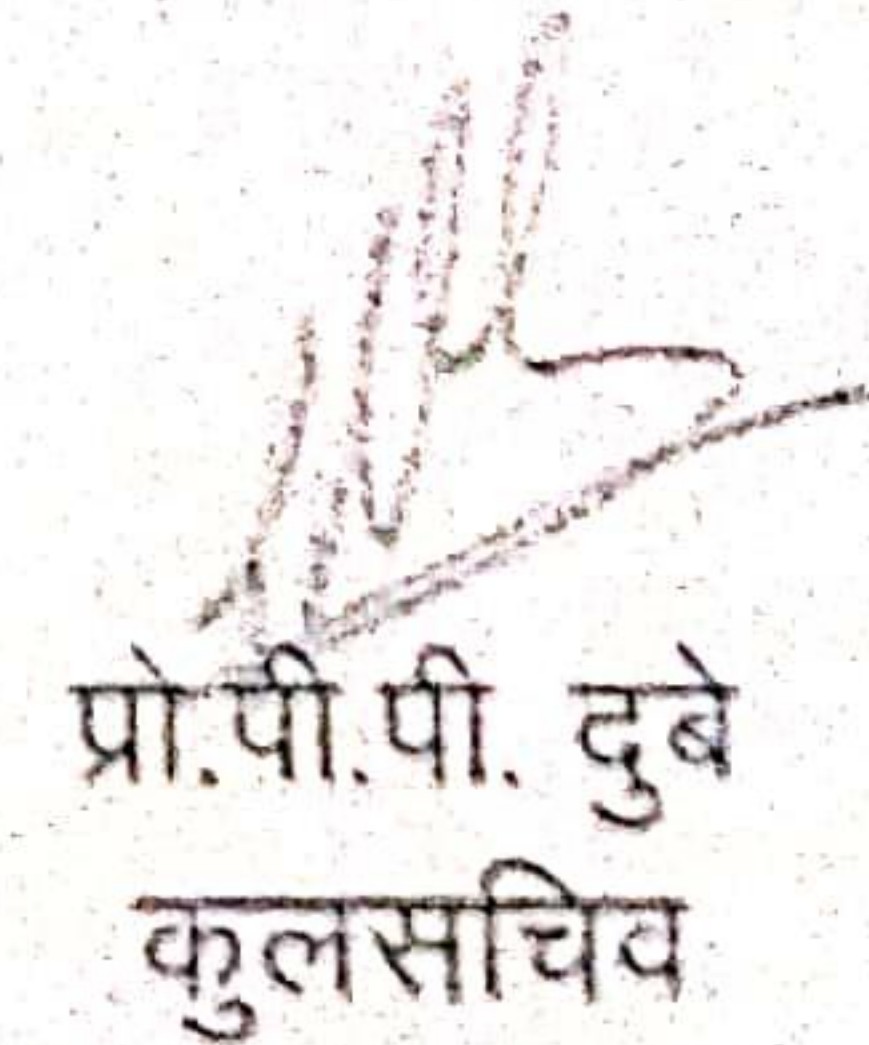 प्रो.पी.पी. दुबे
कुलसचिव